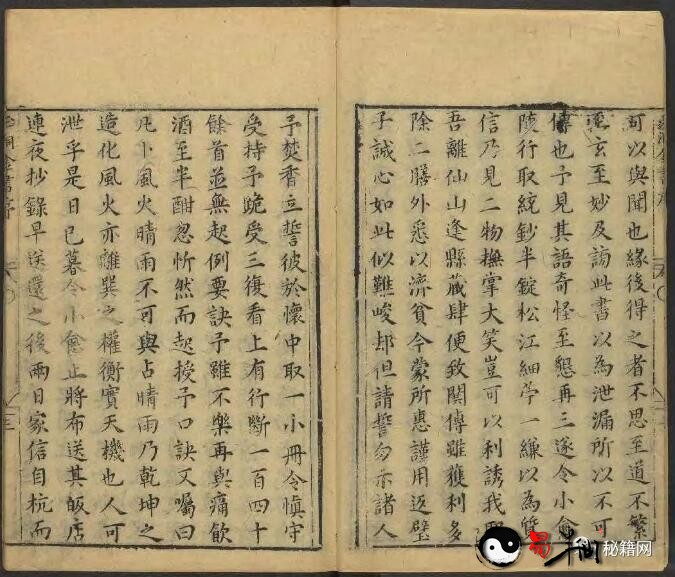 可以與聞也緣後得之者不思至道不繁
至玄至妙及謗此書以為泄漏所以不可
傳也予見其語奇怪至懇再三遂令小僮
行取統鈔半錠松江細苧一縑以為贄
信乃見二物撫掌大笑豈可以利誘我
吾離仙山逢縣藏肆便致関傳雖獲利多
除二膳外悉以濟貧今蒙所惠謹用返璧
子誠心如此似難峻却但請誓勿示諸人
予焚香立誓彼於懷中取一小冊令慎守
受持予跪受三復看上有行斷一百四十
餘首並無起例要訣予雖不樂再與痛飲
酒至半酣忽忻然而起授予口訣又囑曰
凡卜風火晴雨不可與占晴雨乃乾坤之
造化風火亦離巽之權衡實天機也人可
泄乎是日已暮令小僮止將布送其飯店
連夜抄錄早送還之後兩日家信自杭而
三
秘籍网